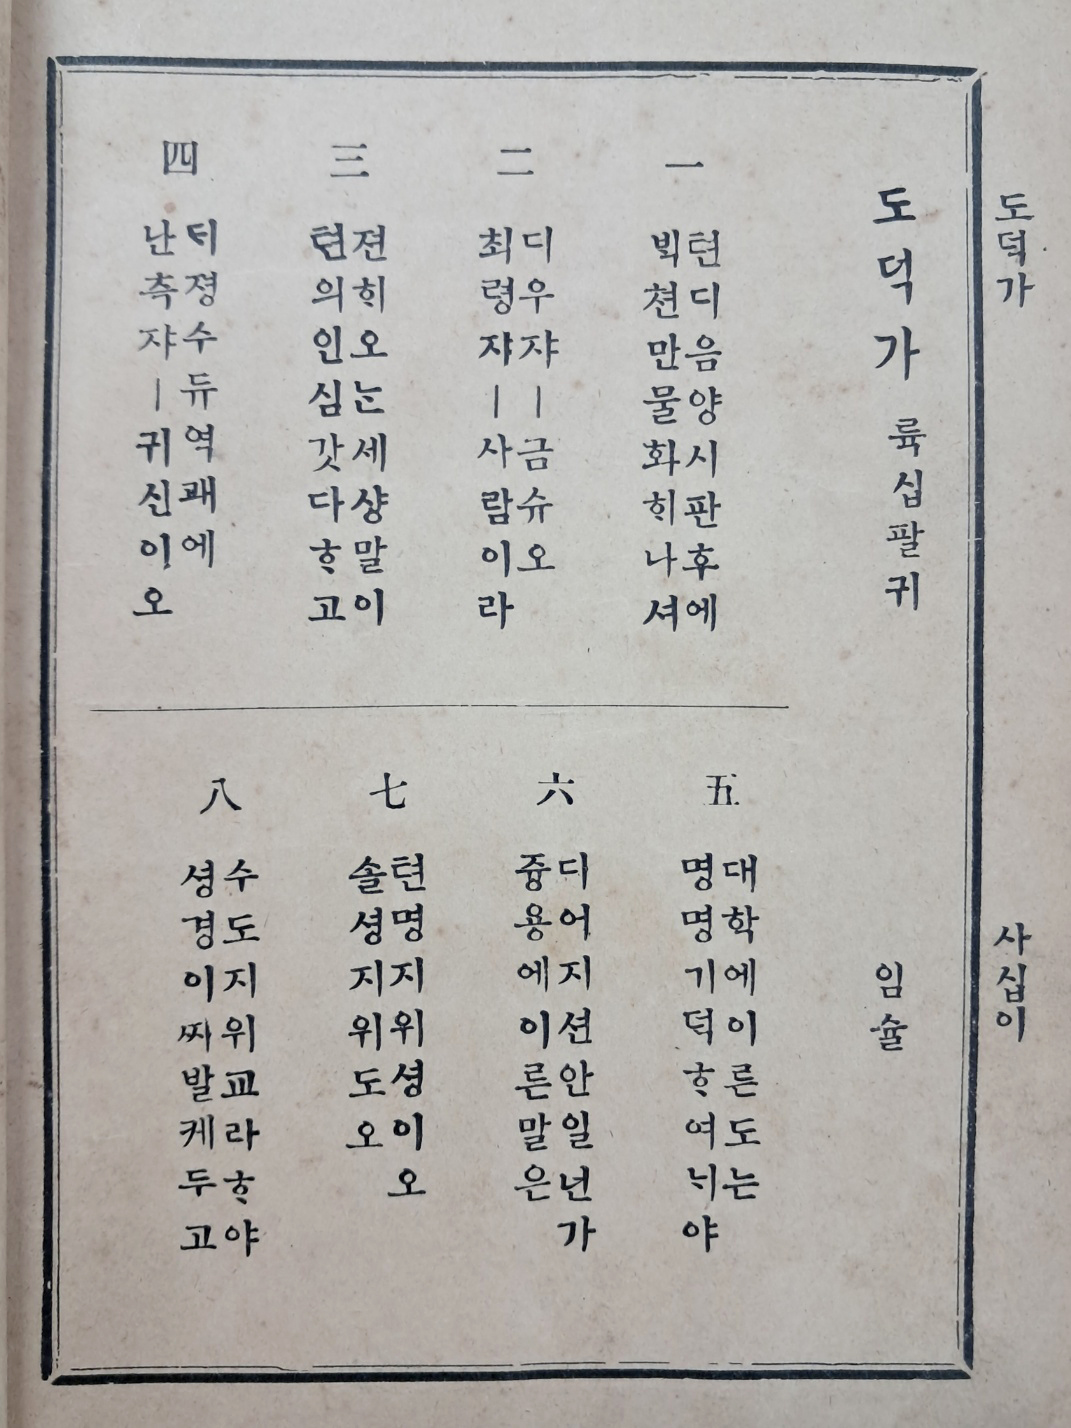 도덕가
사십이
도덕가 륙십팔귀 임슐
一
텬디음양시판후에
ᄇᆡᆨ쳔만물화ᄒᆡ나셔
二
디우쟈ㅣ금슈오
최령쟈ㅣ사람이라
三
젼ᄒᆡ오ᄂᆞᆫ세샹말이
텬의인심갓다ᄒᆞ고
四
ᄃᆡ졍수듀역괘에
난측쟈ㅣ귀신이오
五
대학에이른도는
명명기덕ᄒᆞ여ᄂᆡ야
六
디어지션안일넌가
즁용에이른말은
七
텬명지위셩이오
솔셩지위도오
八
수도지위교라ᄒᆞ야
셩경이ᄶᅡ발케두고